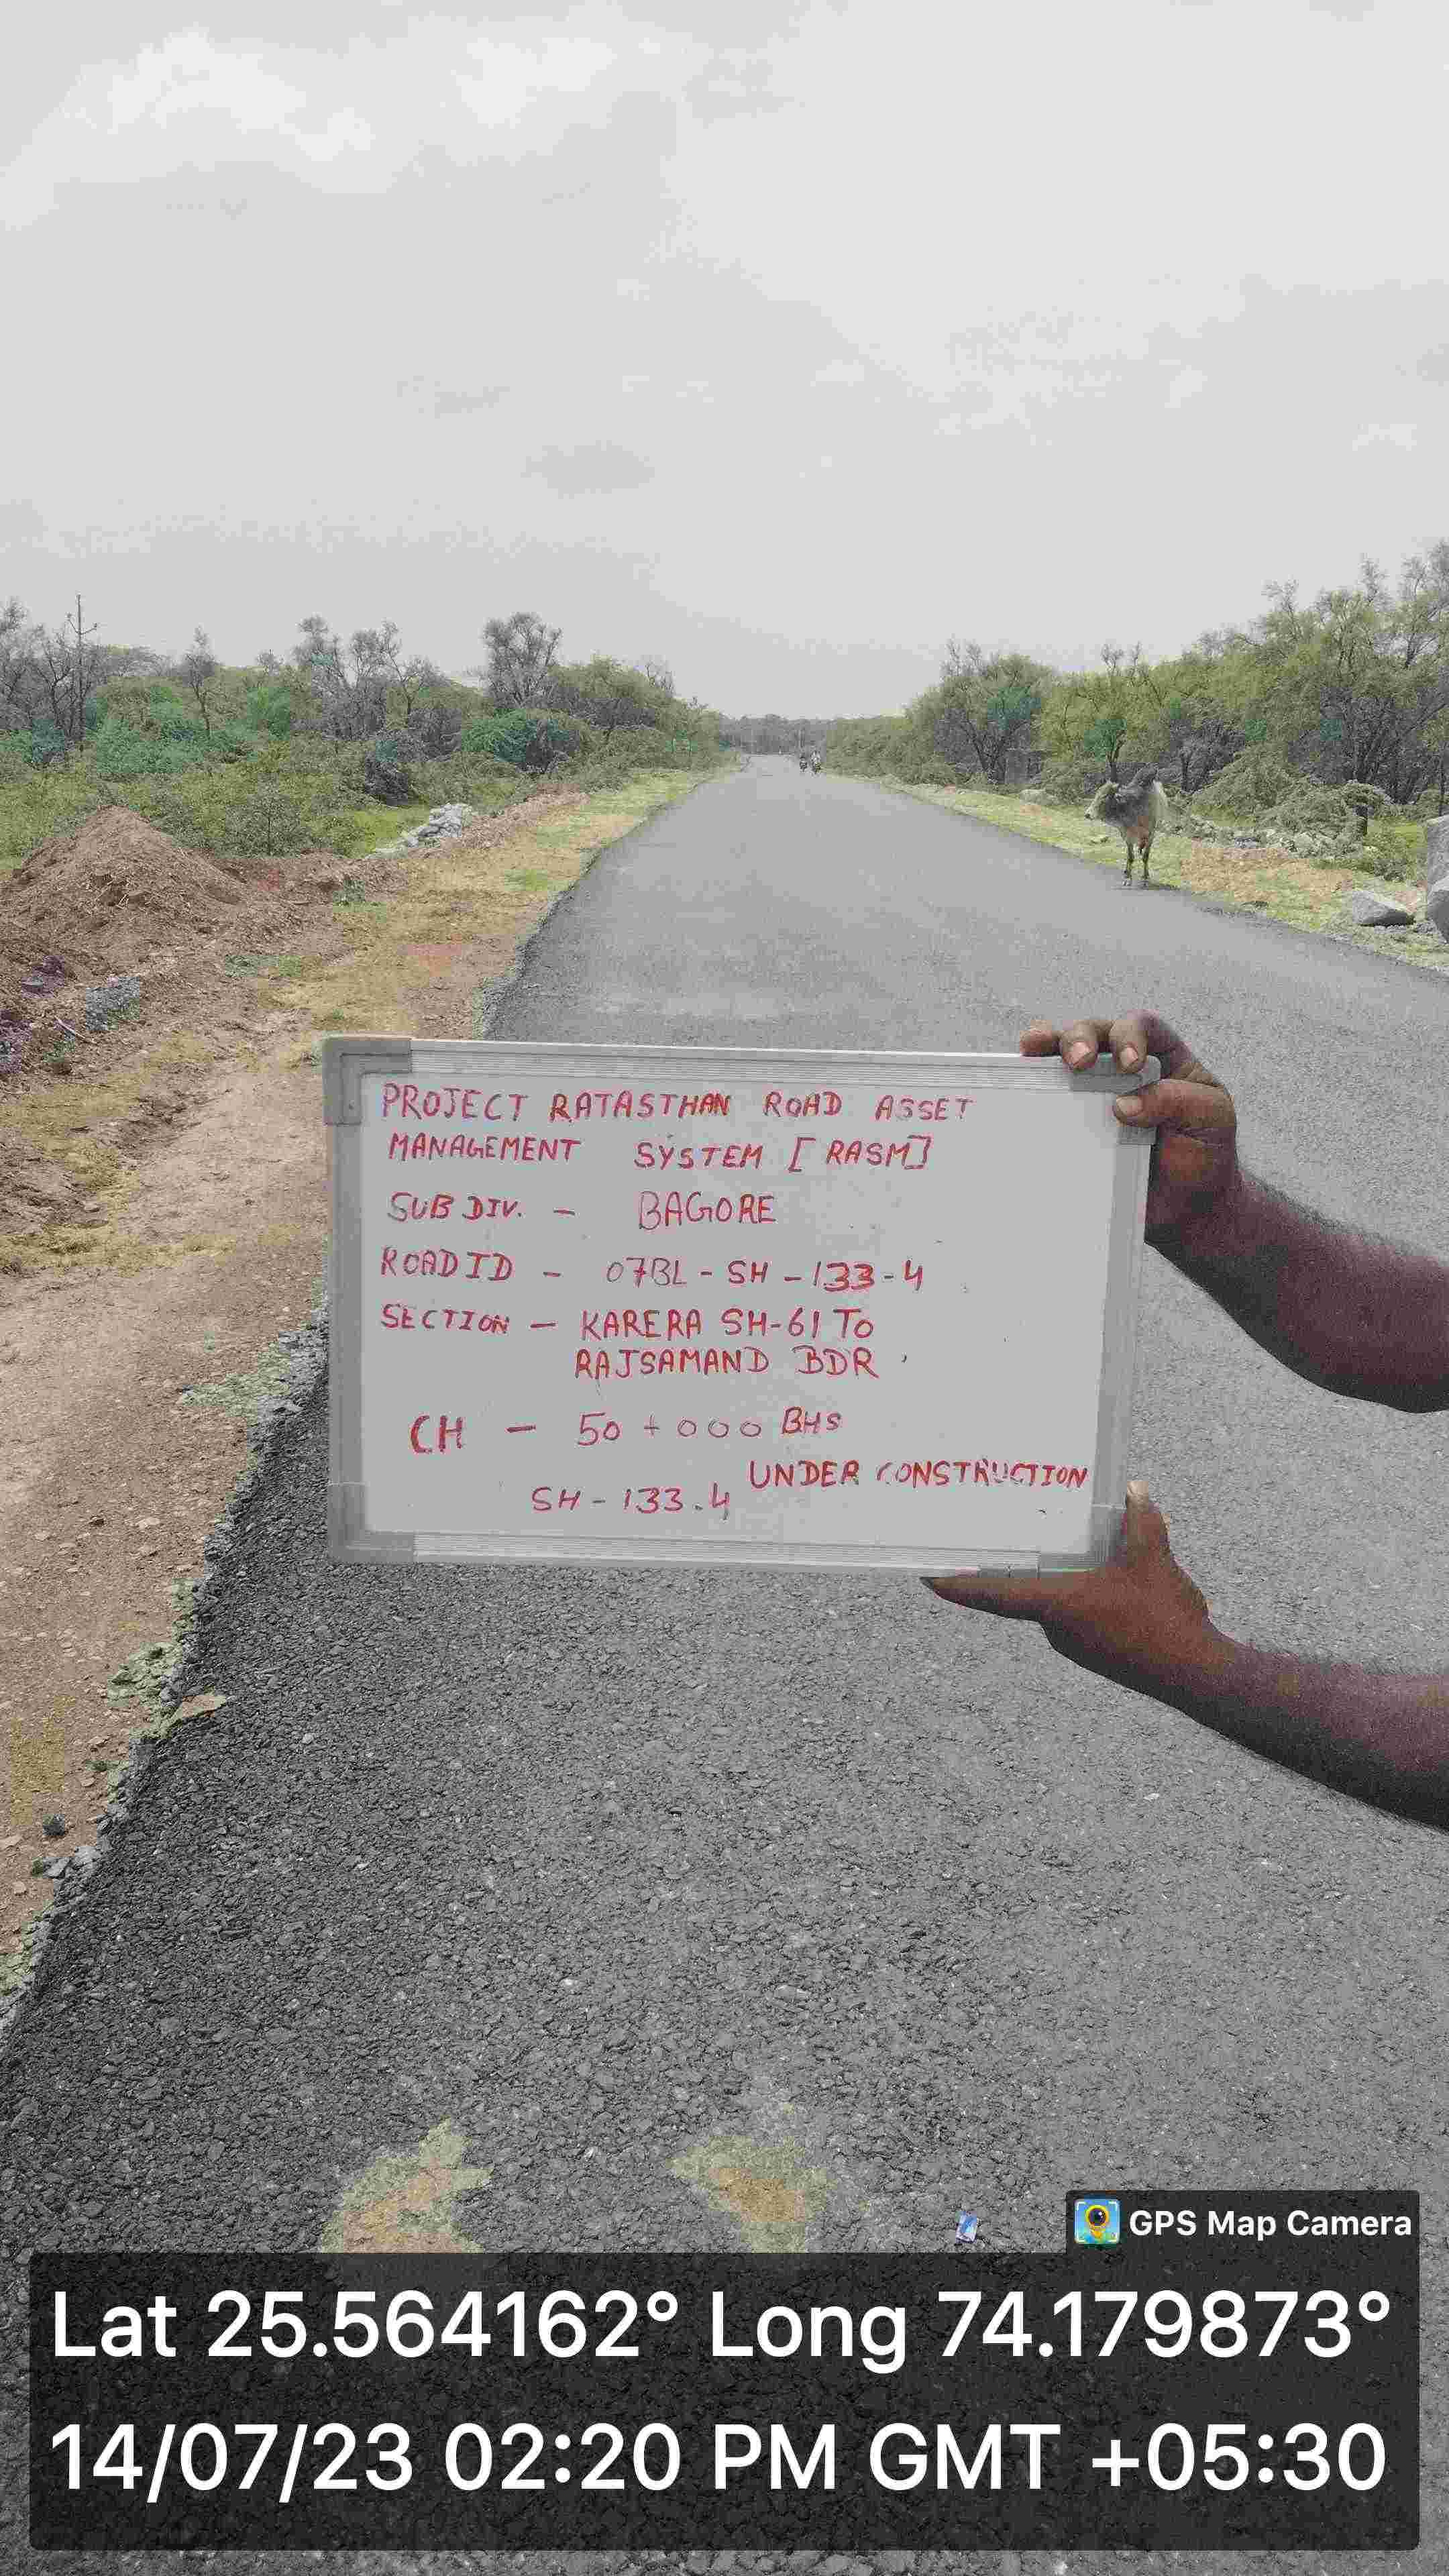 PROJECT RATASTHAN ROAD ASSET
MANAGEMENT SYSTEM [RASM]
SUB DIV. - BAGORE
ROAD ID - 07BL-SH-133-4
SECTION - KARERA SH-61 TO
RAJSAMAND BDR
CH - 50+000 BHS
UNDER CONSTRUCTION
SH-133.4
GPS Map Camera
Lat 25.564162° Long 74.179873°
14/07/23 02:20 PM GMT +05:30